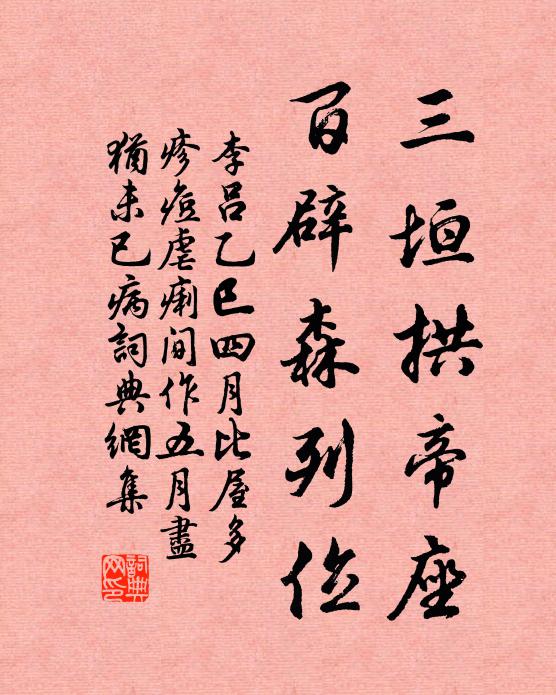 三垣拱帝座
百辟森列位
李呂乙巳四月比屋多
疹痘虐痢間作五月盡
猶未已病詞典網集
詞典網印